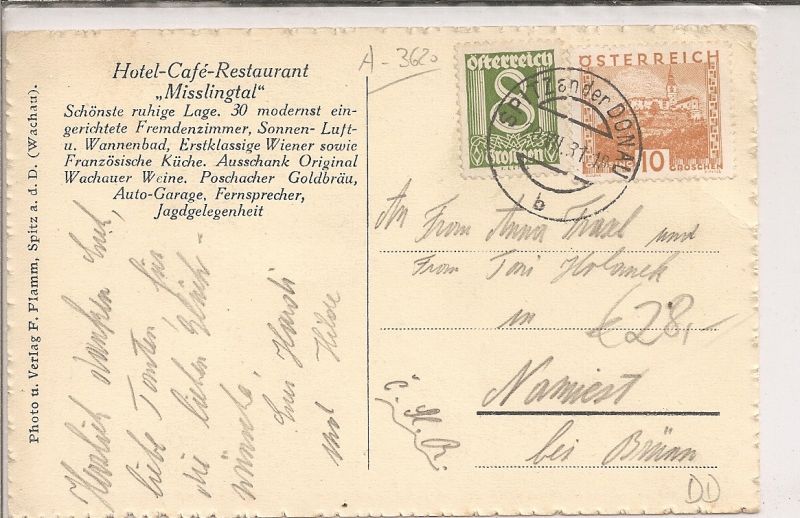 Hotel-Café-Restaurant
„Misslingtal“
Schönste ruhige Lage. 30 modernst ein-
gerichtete Fremdenzimmer, Sonnen- Luft-
u. Wannenbad, Erstklassige Wiener sowie
Französische Küche. Ausschank Original
Wachauer Weine. Poschacher Goldbräu,
Auto-Garage, Fernsprecher,
Jagdgelegenheit
Photo u. Verlag F. Flamm, Spitz a. d. D. (Wachau).
Herzlich danken Euch,
liebe Tanten für
die lieben Glück-
wünsche,
Eure Hardi
und Hilde
A-3620
Österreich
8
Groschen
ÖSTERREICH
10
GROSCHEN
SPITZ an der DONAU
b
An Frau Anna und
Frau Toni Holanek
in
Namiest
bei Brünn
Č.S.R.
€28,-
DD